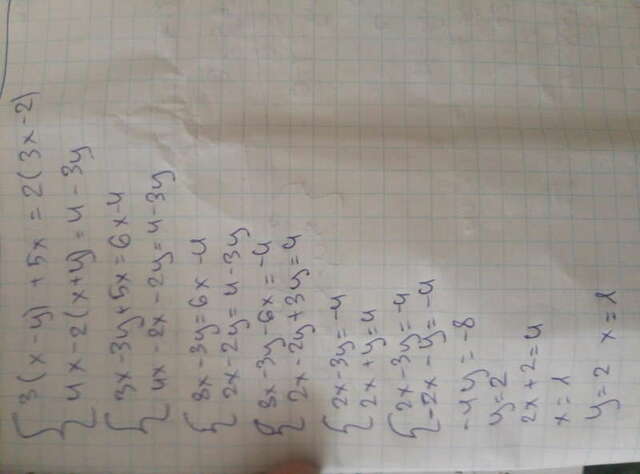 3(x-y)+5x=2(3x-2)
4x-2(x+y)=4-3y
3x-3y+5x=6x-4
4x-2x-2y=4-3y
8x-3y=6x-4
2x-2y=4-3y
8x-3y-6x=-4
2x-2y+3y=4
2x-3y=-4
2x+y=4
2x-3y=-4
-2x-y=-4
-4y=-8
y=2
2x+2=4
x=1
y=2 x=1